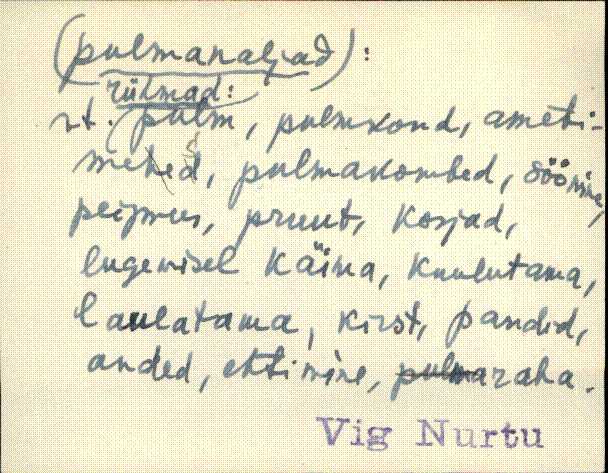 (pulmanaljad):
rühmad:
vt. pulm, pulmkond, ameti-
mehed, pulmakombed, söömine,
peigmus, pruut, kosjad,
lugemisel käima, kuulutama,
laulatama, kirst, pandid,
anded, ehtimine, pulmaraha.
Vig Nurtu